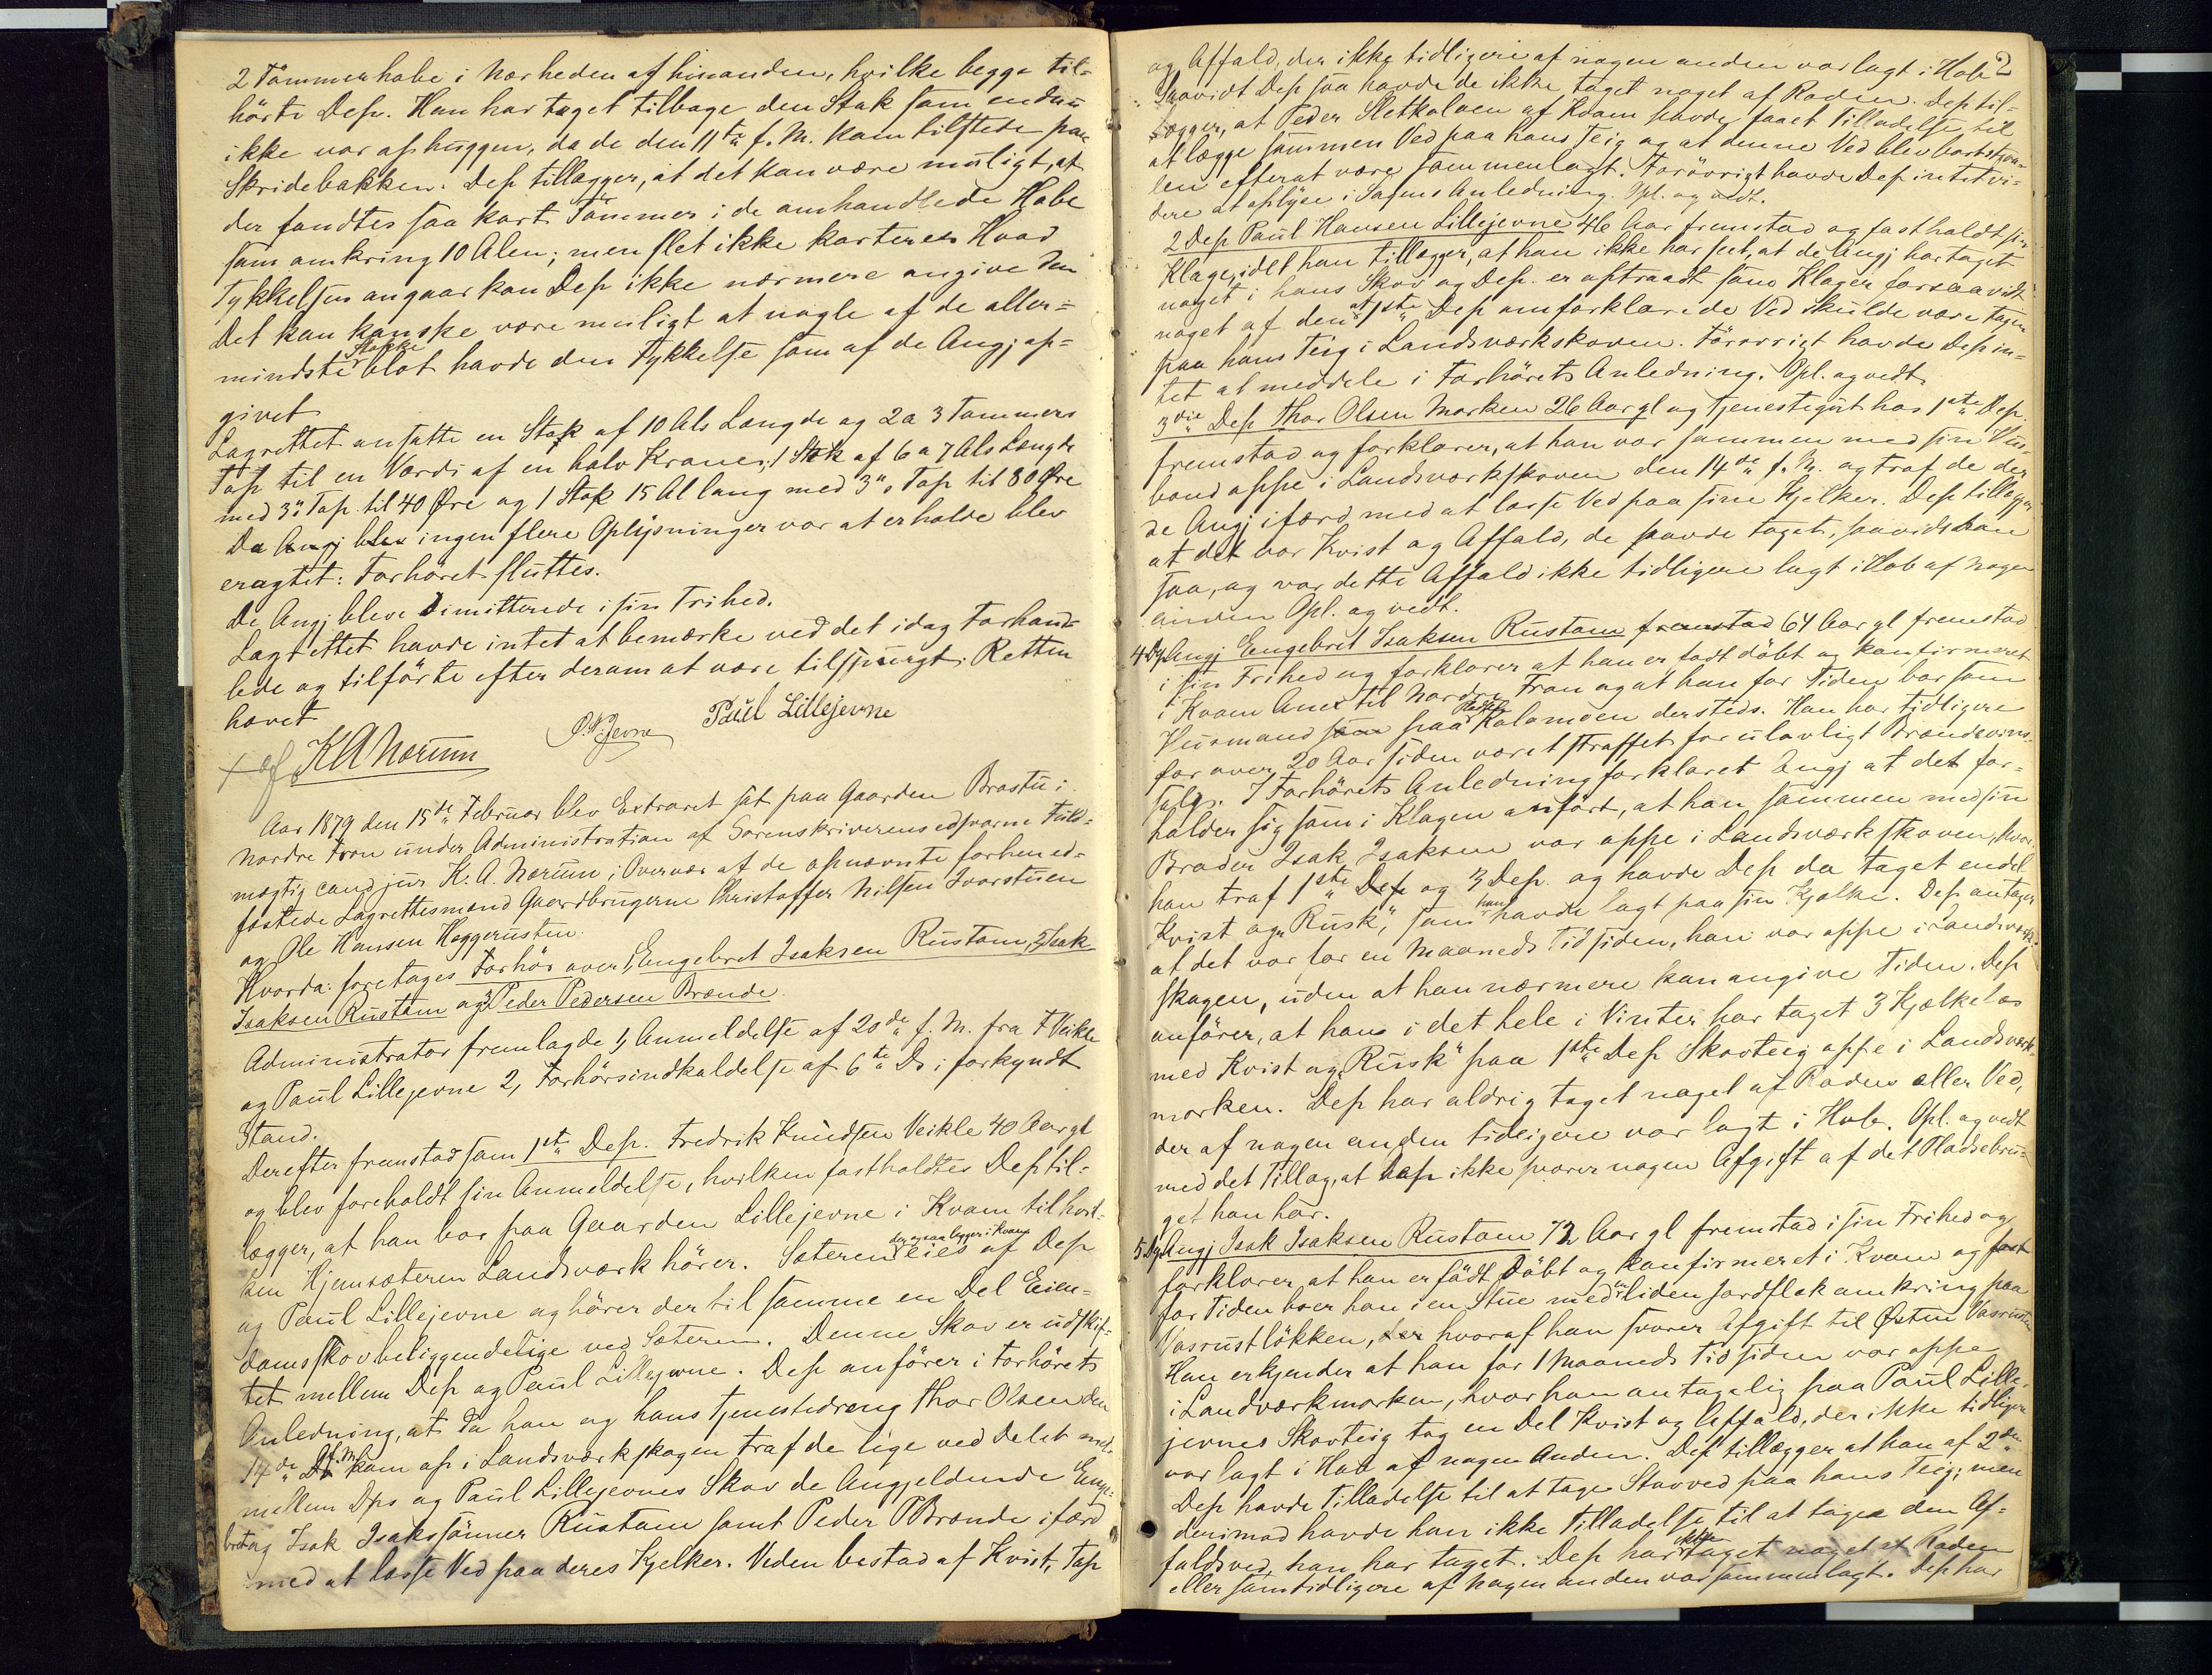 2 Tömmerhobe i Nærheden af hinanden, hvilke begge til-
hörte Dep. Han har taget tilbage den Stok som endnu
ikke var ophuggen, da de den 11te f. M. kom tilstede paa
Skridebakken. Dep tillægger, at det kan være muligt, at
der fandtes saa kort Tömmer i de omhandlede Hobe
som omkring 10 Alen; men slet ikke korteres. Hvad
Tykkelsen angaar kan Dep ikke nærmere angive den
Det kan kanske være muligt at nogle af de aller-
mindste Stokke blot havde den Tykkelse som af de Angj op-
givet
Lagrettet ansatte en Stok af 10 Als Længde og 2 a 3 Tommers
Top til en Værdi af en halv Krone, 1 Stok af 6 a 7 Als Længde
med 3" Top til 40 Øre og 1 Stok 15 Al lang med 3" Top til 80 Øre
Da Angj blev ingen flere Oplysninger var at erholde blev
eragtet: Forhöret sluttes.
De Angj bleve dimitterede i sin Frihed.
Lagrettet havde intet at bemærke ved det idag Forhand-
lede og tilförte efter derom at være tilspurgt. Retten
hævet
K A Norum P. N. Jevne Paul Lillejevne
Aar 1879 den 15de Februar blev Extraret sat paa Gaarden Brastu i
Nordre Fron under Administration af Sorenskriverens edsvorne Fuld-
mægtig cand jur K. A. Norum i Overvær af de opnævnte forhen ed-
fæstede Lagrettesmænd Gaardbrugerne Christoffer Nilsen Ivarstuen
og Ole Hansen Haggerusten.
Hvorda: foretages Forhör over 1, Engebret Isaksen Rustom, 2, Isak
Isaksen Rustom og 3, Peder Pedersen Brænde.
Administrator fremlagde 1, Anmeldelse af 20de f. M. fra F Veikle
og Paul Lillejevne 2, Forhörsindkaldelse af 6te Ds i forkyndt
Stand.
Derefter fremstod som 1ste Dep. Fredrik Knudsen Veikle 40 Aar gl
og blev foreholdt sin Anmeldelse, hvilken fastholdtes Dep til-
lægger, at han bor paa Gaarden Lillejevne i Kvam til hvil-
ken Hjemsæteren Landsværk hörer. Sæteren der ogsaa ligger i Kvam eies af Dep
og Paul Lillejevne og hörer der til samme en Del Eien-
domsskov beliggendelige ved Sæteren. Denne Skov er udskif-
tet mellem Dep og Paul Lillejevne. Dep anförer i Forhörets
Anledning, at da han og hans Tjenestedreng Thor Olsen den
14de f. M. kom op i Landsværkskogen traf de lige ved Delet
mellem Dps og Paul Lillejevnes Skov de Angjeldende Enge-
bret og Isak Isakssönner Rustom samt Peder P Brænde ifærd
med at læsse Ved paa deres Kjelker. Veden bestod af Kvist, Top
2
og Affald, der ikke tidligere af nogen anden var lagt i Hob
Saavidt Dep saa havde de ikke taget noget af Roden. Dep til-
lægger, at Peder Sletkoloen af Kvam havde faaet Tilladelse til
at lægge sammen Ved paa hans Teig og at denne Ved blev bortstjaa-
len efterat være sammenlagt. Forövrigt havde Dep intet vi-
dere at oplyse i Sagens Anledning. Opl. og vedt.
2 Dep Paul Hansen Lillejevne 46 Aar fremstod og fastholdt sin
Klage, idet han tillægger, at han ikke har seet, at de Angj har taget
noget i hans Skov og Dep. er optraadt som Klager forsaavidt
noget af den af 1ste Dep omforklarede Ved skulde være tagen
paa hans Teig i Landsværkskoven. Forövrigt havde Dep in-
tet at meddele i Forhörets Anledning. Opl. og vedt
3die Dep Thor Olsen Morken 26 Aar gl og Tjenestegut hos 1ste Dep.
fremstod og forklarer, at han var sammen med sin Hus-
bond oppe i Landsværkskoven den 14de f. M. og traf de der
de Angj ifærd med at læsse Ved paa sine Kjelker. Dep tillægger
at det var Kvist og Affald, de havde taget, saavidt han
saa, og var dette Affald ikke tidligere lagt i Hob af nogen
anden Opl. og vedt.
4 Dp Angj Engebret Isaksen Rustom fremstod 64 Aar gl fremstod
i sin Frihed og forklarer at han er födt döbt og konfirmeret
i Kvam Anex til Nordre Fron og at han for Tiden bor som
Husmand som paa Pladsen Kolomoen dersteds. Han har tidligere
for over 20 Aar siden været straffet for ulovligt Brændevins-
salg. I Forhörets Anledning forklaret Angj at det for-
holder sig som i Klagen anfört, at han sammen med sin
Broder Isak Isaksen var oppe i Landsværkskoven, hvor
han traf 1ste Dep og 3 Dep. og havde Dep da taget endel
Kvist og "Rusk", som han havde lagt paa sin Kjælke. Dep antager
at det var for en Maaneds Tid siden, han var oppe i Landsværk-
skogen, uden at han nærmere kan angive Tiden. Dep
anförer, at hans i det hele i Vinter har taget 3 Kjælkelæs
med Kvist og "Rusk" paa 1ste Dep Skovteig oppe i Landsværk-
marken. Dep har aldrig taget noget af Roden eller Ved,
der af nogen anden tidligere var lagt i Hob. Opl. og vedt
med det Tillæg, at Dep ikke svarer nogen Afgift af det Pladsebru-
get han har.
5 Dp Angj Isak Isaksen Rustom 72 Aar gl fremstod i sin Frihed og
forklarer, at han er födt döbt og konfirmeret i Kvam og
for Tiden boer han i en Stue med en liden Jordflek omkring paa
Vasrustlökken, der hvoraf han svarer Afgift til Østen Vasrusten
Han erkjender at han for 1 Maaneds Tid siden var oppe
i Landværkmarken, hvor han antagelig paa Paul Lille-
jevnes Skovteig tog en Del Kvist og Affald, der ikke tidligere
var lagt i Hob af nogen Anden. Dep tillægger at han af 2den
Dep havde Tilladelse til at tage Stovved paa hans Teig; men
derimod havde han ikke Tilladelse til at tage den Af-
faldsved, han har taget. Dep har ikke taget noget af Roden
eller som tidligere af nogen anden var sammenlagt. Dep har